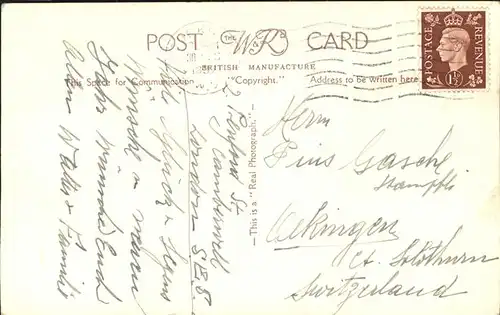 POST
THE
W&K
CARD
BRITISH MANUFACTURE
This Space for Communication
"Copyright."
Address to be written here
POSTAGE
REVENUE
1½D
—This is a "Real Photograph."—
Herrn
Pius Gasche
Oekingen
Ct. Solothurn
Switzerland
Camberwell
London S.E.5.
Viele Glück & Segens
Wünsche &
Wünscht Euch
Walter & Familie